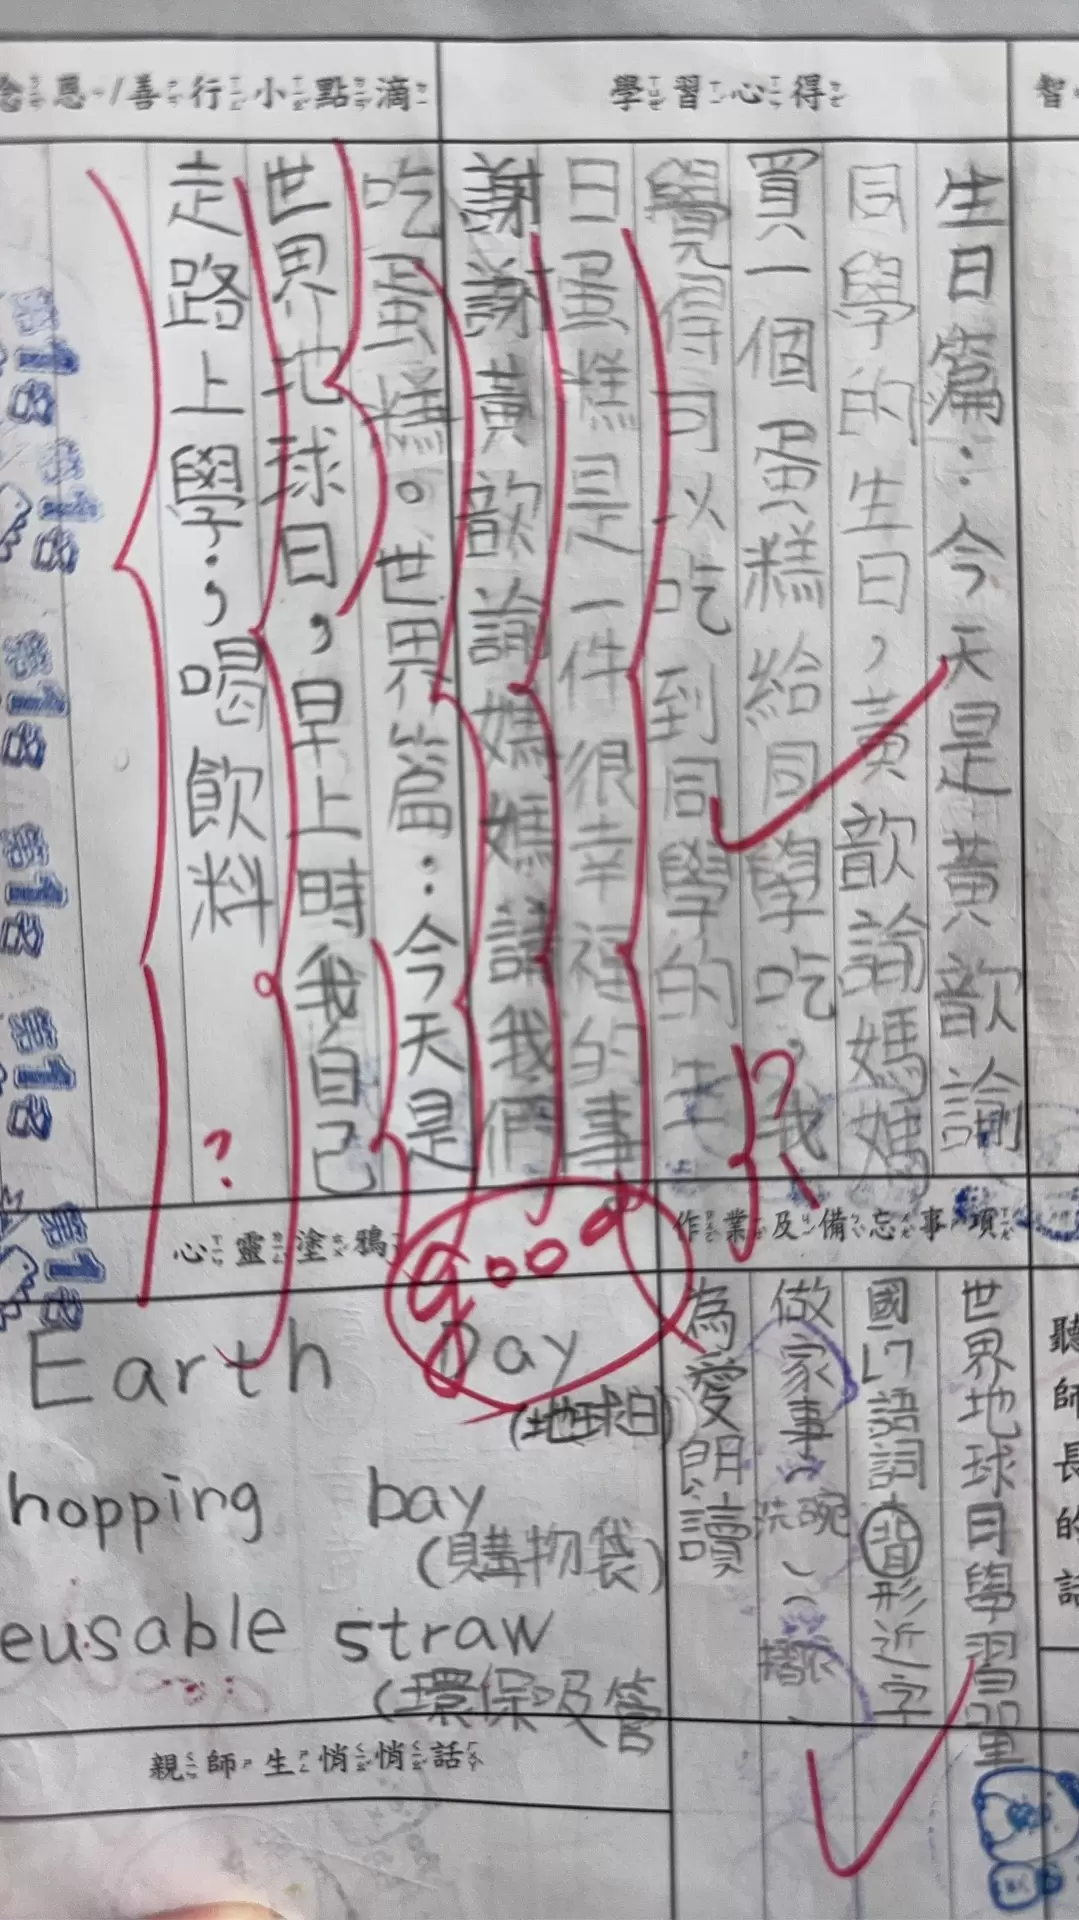 念恩/善行小點滴
學習心得
智
生日篇：今天是黃歆諭
同學的生日，黃歆諭媽媽
買一個蛋糕給同學吃，我
覺得可以吃到同學的生
日蛋糕是一件很幸福的事
謝謝黃歆諭媽媽請我們
吃蛋糕。世界篇：今天是
世界地球日，早上時我自己
走路上學，喝飲料
？
good
作業及備忘事項
世界地球日學習單
國L7語詞背形近字
做家事（洗碗）（摺衣）
為愛朗讀
聽師長的話
心靈塗鴉
Earth Day
（地球日）
hopping bay
（購物袋）
eusable straw
（環保吸管
親師生悄悄話
第18
第18
第18
第18
第18
第18